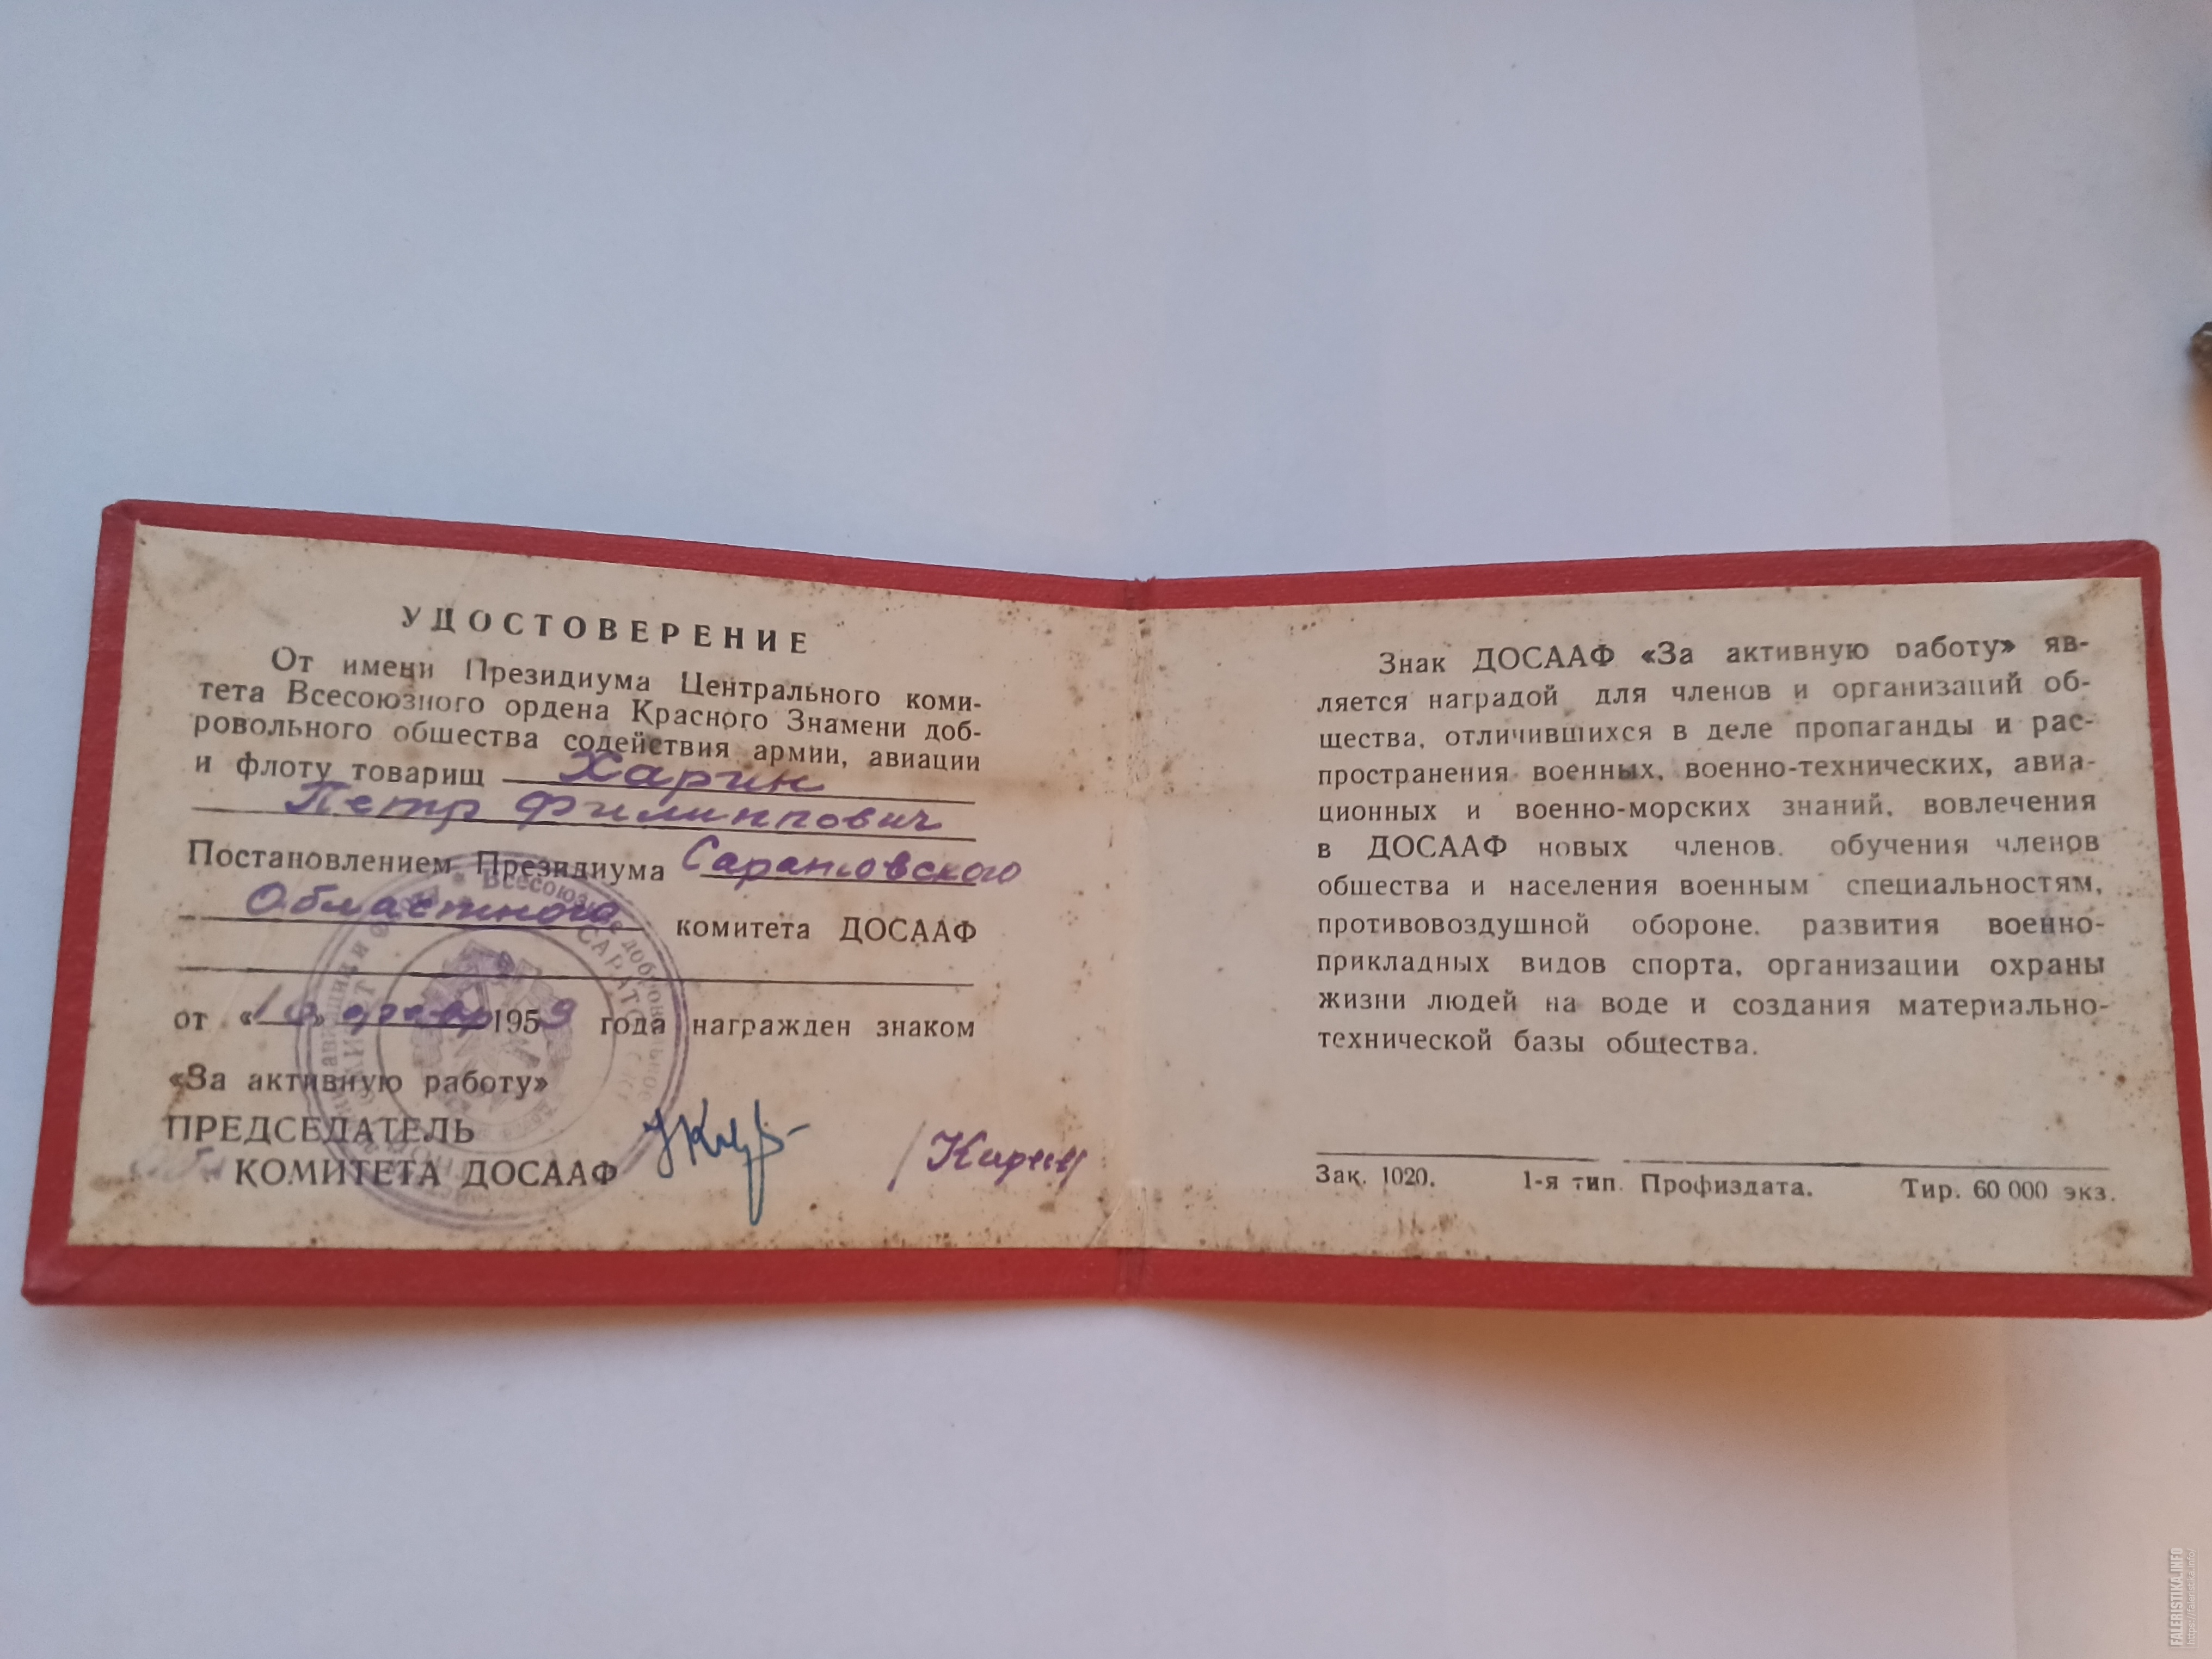 УДОСТОВЕРЕНИЕ
От имени Президиума Центрального коми-
тета Всесоюзного ордена Красного Знамени доб-
ровольного общества содействия армии, авиации
и флоту товарищ Харин
Петр Филиппович
Постановлением Президиума Саратовского
Областного комитета ДОСААФ
от «10» 1959 года награжден знаком
«За активную работу»
ПРЕДСЕДАТЕЛЬ
КОМИТЕТА ДОСААФ
Всесоюзное добровольное
САРАТОВСКИЙ
Знак ДОСААФ «За активную работу» яв-
ляется наградой для членов и организаций об-
щества, отличившихся в деле пропаганды и рас-
пространения военных, военно-технических, авиа-
ционных и военно-морских знаний, вовлечения
в ДОСААФ новых членов, обучения членов
общества и населения военным специальностям,
противовоздушной обороне, развития военно-
прикладных видов спорта, организации охраны
жизни людей на воде и создания материально-
технической базы общества.
Зак. 1020. 1-я тип. Профиздата. Тир. 60 000 экз.
FALERISTIKA.INFO
https://faleristika.info/